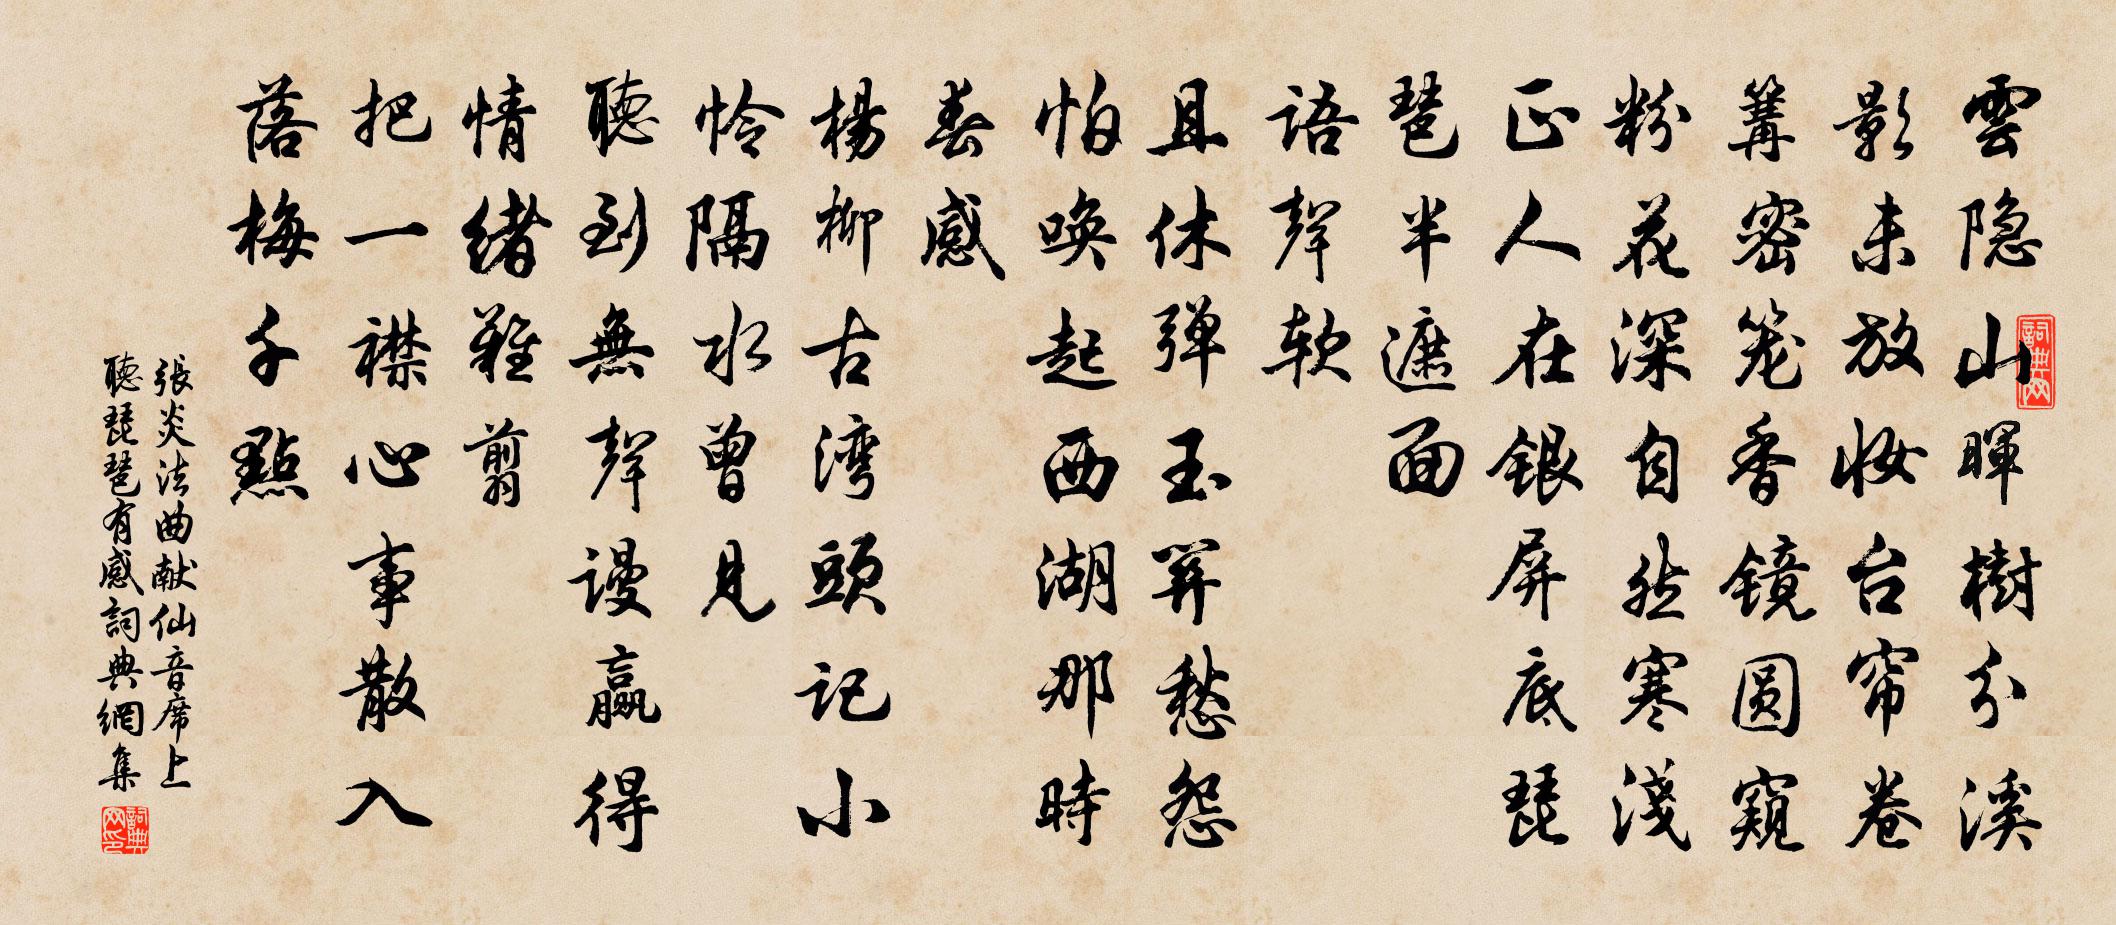 雲隐山暉樹分溪
影未放妆台帘卷
篝密笼香镜圆窺
粉花深自然寒淺
正人在银屏底琵
琶半遮面
語聲软
且休弹玉关愁怨
怕唤起西湖那時
春感
楊柳古湾頭記小
怜隔水曾見
聽到無聲谩赢得
情緒難剪
把一襟心事散入
落梅千點
張炎法曲献仙音席上
聽琵琶有感詞典網集
詞典网
詞典网印